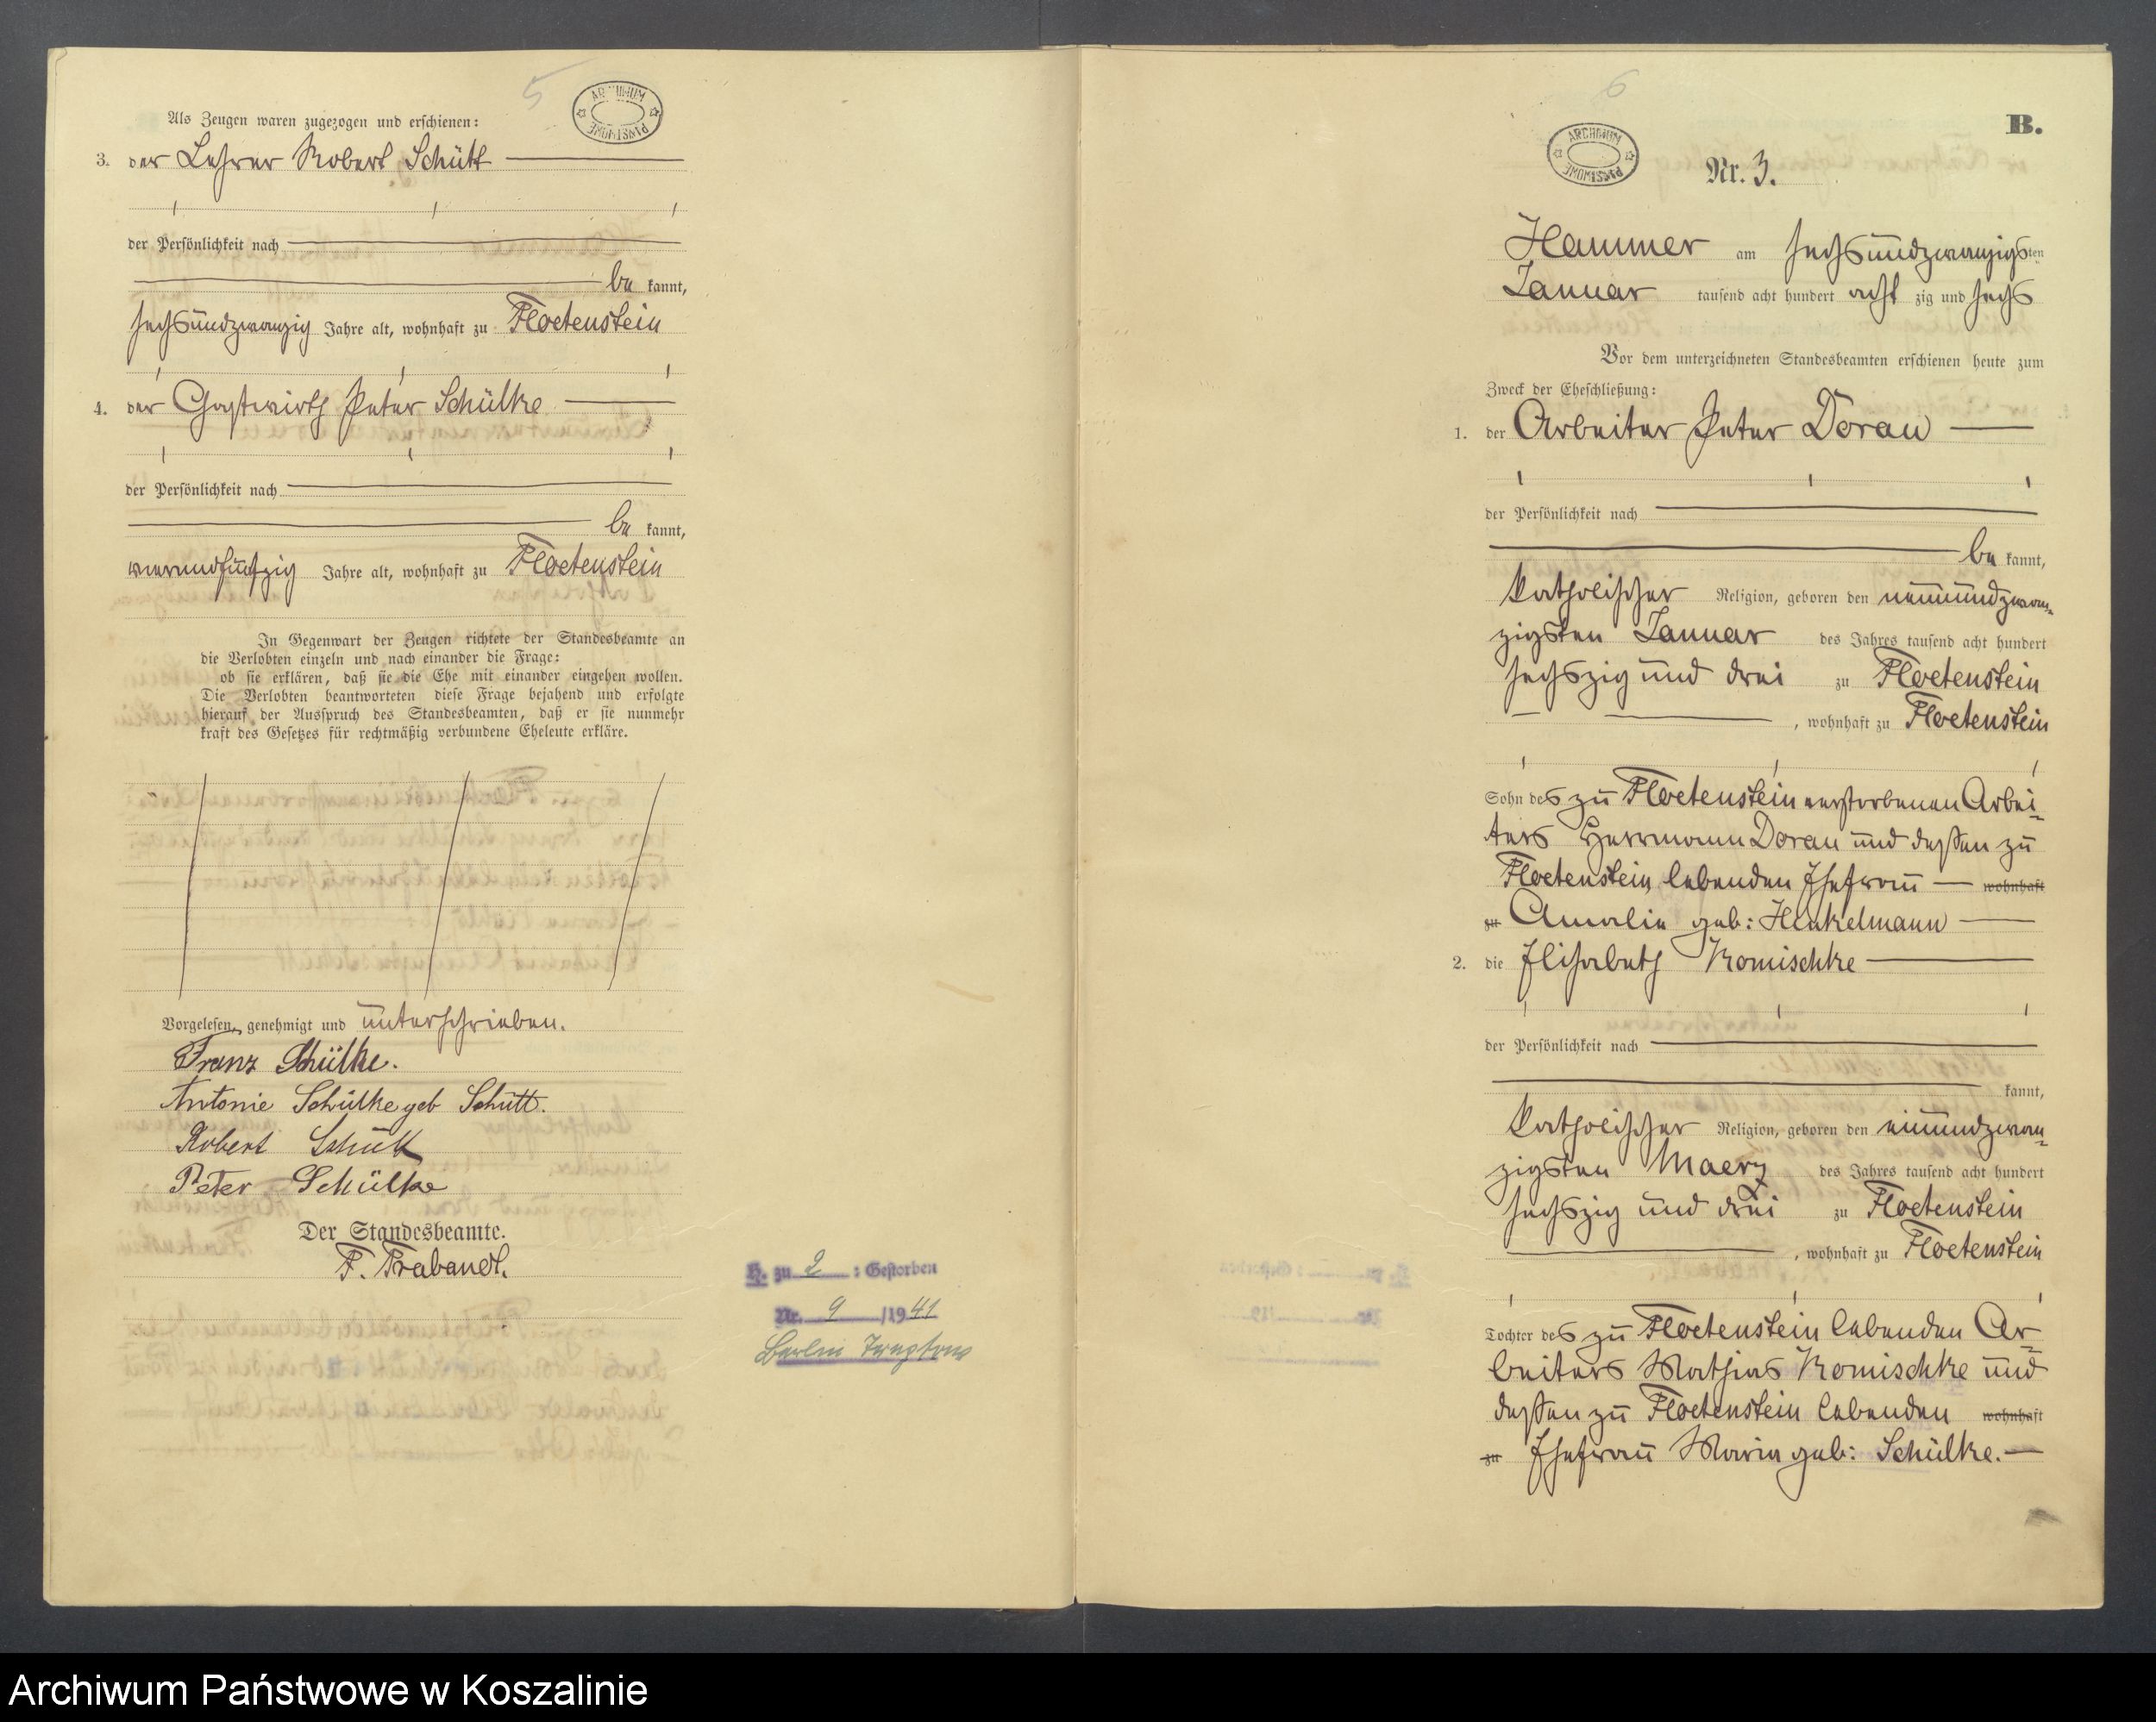 5
ARCHIWUM PAŃSTWOWE
Als Zeugen waren zugezogen und erschienen:
3. der Lehrer Robert Schütt
der Persönlichkeit nach
be kannt,
sechsundzwanzig Jahre alt, wohnhaft zu Floetenstein
4. der Gastwirth Peter Schülke
der Persönlichkeit nach
be kannt,
vierundfünfzig Jahre alt, wohnhaft zu Floetenstein
In Gegenwart der Zeugen richtete der Standesbeamte an
die Verlobten einzeln und nach einander die Frage:
ob sie erklären, daß sie die Ehe mit einander eingehen wollen.
Die Verlobten beantworteten diese Frage bejahend und erfolgte
hierauf der Ausspruch des Standesbeamten, daß er sie nunmehr
kraft des Gesetzes für rechtmäßig verbundene Eheleute erkläre.
Vorgelesen, genehmigt und unterschrieben.
Franz Schülke.
Antonie Schülke geb Schütt.
Robert Schütt
Peter Schülke
Der Standesbeamte.
F. Trabandt.
H. zu 2 : Gestorben
Nr. 9 /1941
Berlin
6
B.
ARCHIWUM PAŃSTWOWE
Nr. 3.
Hammer am sechsundzwanzigsten
Januar tausend acht hundert acht zig und sechs
Vor dem unterzeichneten Standesbeamten erschienen heute zum
Zweck der Eheschließung:
1. der Arbeiter Peter Dorau
der Persönlichkeit nach
be kannt,
katholischer Religion, geboren den neunundzwan-
zigsten Januar des Jahres tausend acht hundert
sechszig und drei zu Floetenstein
, wohnhaft zu Floetenstein
Sohn des zu Floetenstein verstorbenen Arbei-
ters Herrmann Dorau und dessen zu
Floetenstein lebenden Ehefrau wohnhaft
zu Amalie geb: Henkelmann
2. die Elisabeth Komischke
der Persönlichkeit nach
kannt,
katholischer Religion, geboren den einundzwan-
zigsten Maerz des Jahres tausend acht hundert
sechszig und drei zu Floetenstein
, wohnhaft zu Floetenstein
Tochter des zu Floetenstein lebenden Ar-
beiters Mathias Komischke und
dessen zu Floetenstein lebenden wohnhaft
zu Ehefrau Maria geb: Schülke.
Archiwum Państwowe w Koszalinie